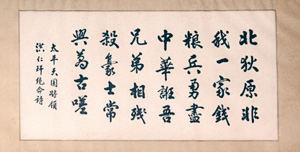 北狄原非
我一家錢
粮兵勇盡
中華誑吾
兄弟相残
殺豪士常
興萬古嗟
太平天國將領
洪仁玕絶命詩